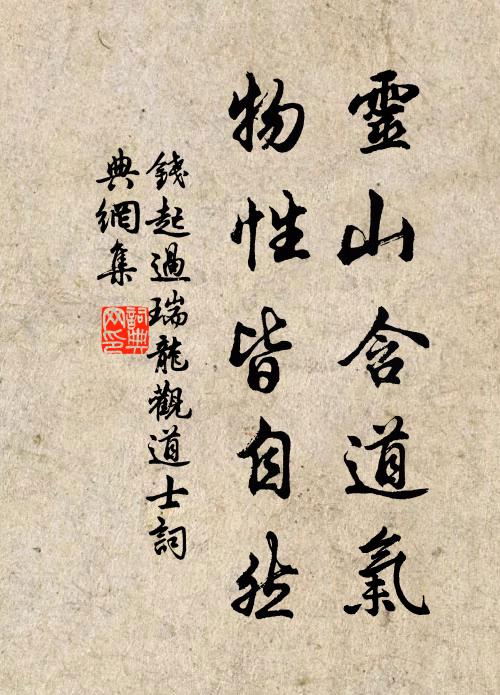 靈山含道氣
物性皆自然
錢起過瑞龍觀道士詞
典網集
詞典
网印